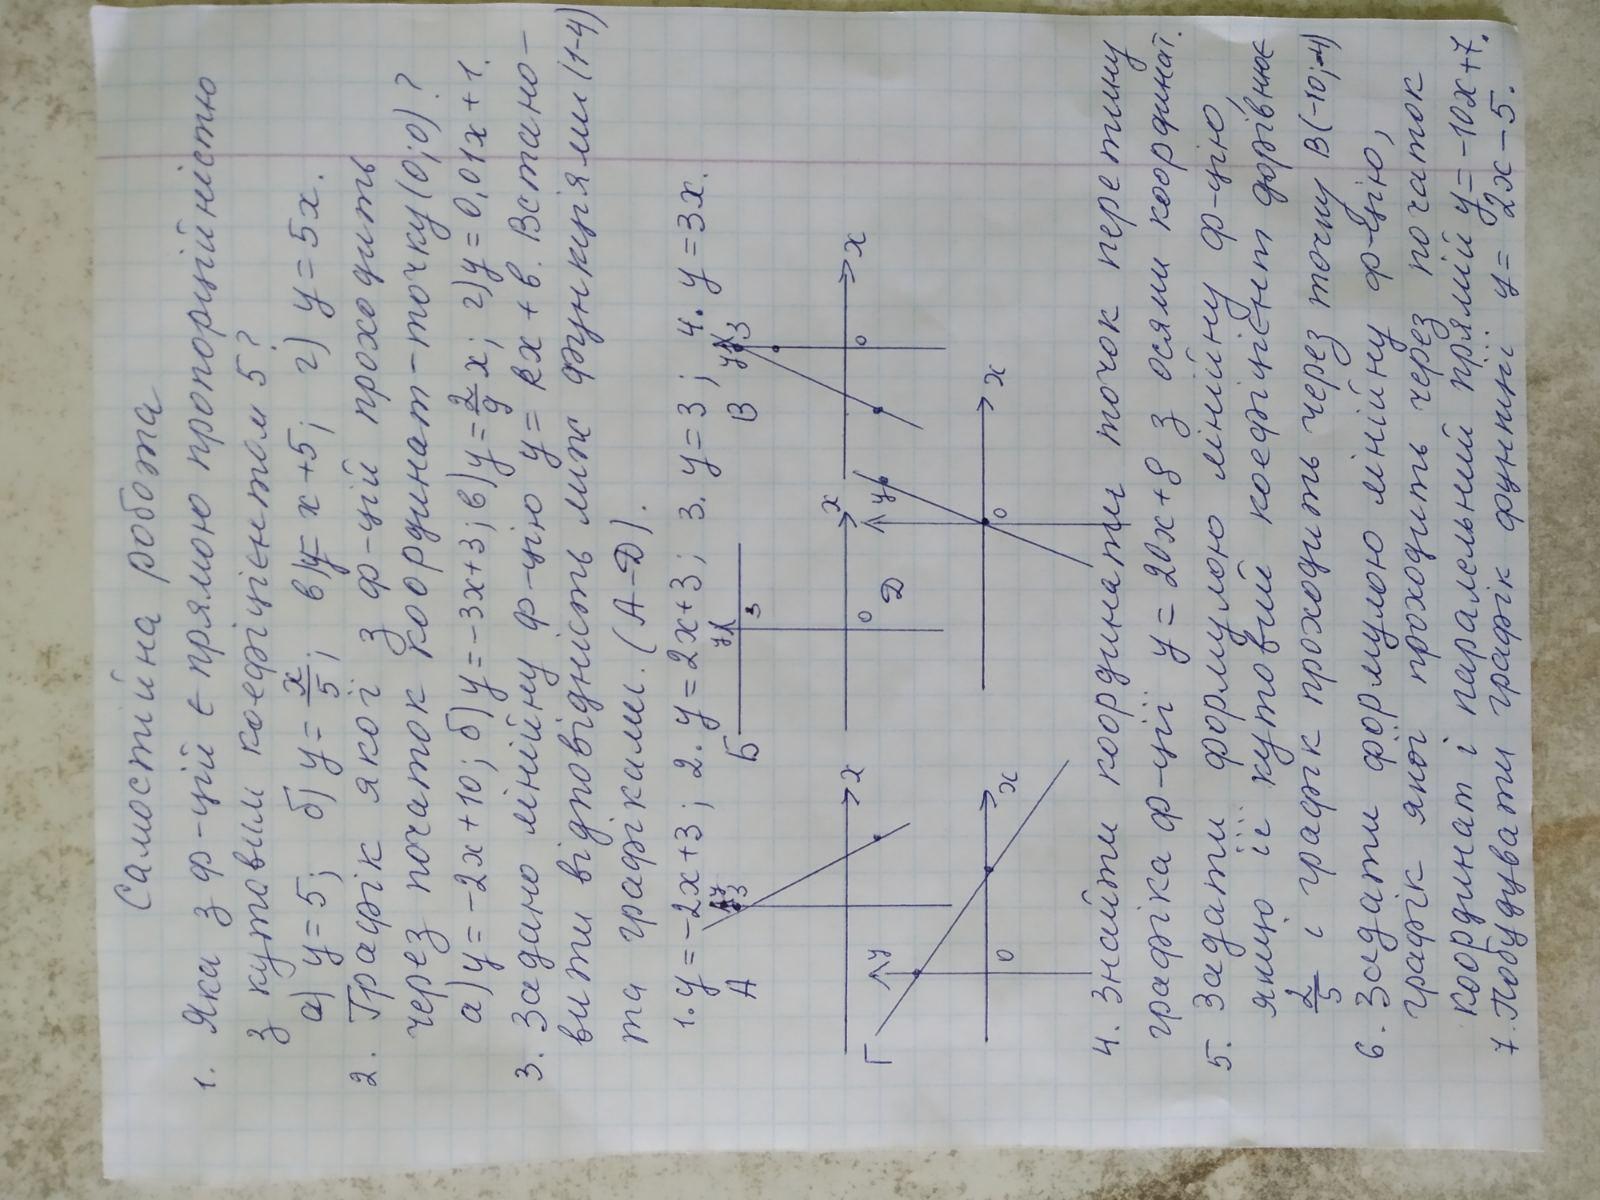 Самостійна робота
1. Яка з ф-цій є прямою пропорційністю
з кутовим коефіцієнтом 5?
а) y = 5; б) y = x/5; в) y = x + 5; г) y = 5x.
2. Графік якої з ф-цій проходить
через початок координат - точку (0;0)?
а) y = -2x + 10; б) y = -3x + 3; в) y = 2/9 x; г) y = 0,01x + 1.
3. Задано лінійну ф-цію y = kx + в. Встано-
вити відповідність між функціями (1-4)
та графіками. (А-Д).
1. y = -2x + 3; 2. y = 2x + 3; 3. y = 3; 4. y = 3x.
А y 3 x Б y 3 0 x В y 3 0 x
Г y 0 x Д y 0 x
4. Знайти координати точок перетину
графіка ф-ції y = 20x + 8 з осями координат.
5. Задати формулою лінійну ф-цію,
якщо її кутовий коефіцієнт дорівнює
2/5 і графік проходить через точку В(-10;-4)
6. Задати формулою лінійну ф-цію,
графік якої проходить через початок
координат і паралельний прямій y = -10x + 7.
7. Побудувати графік функції y = 2x - 5.